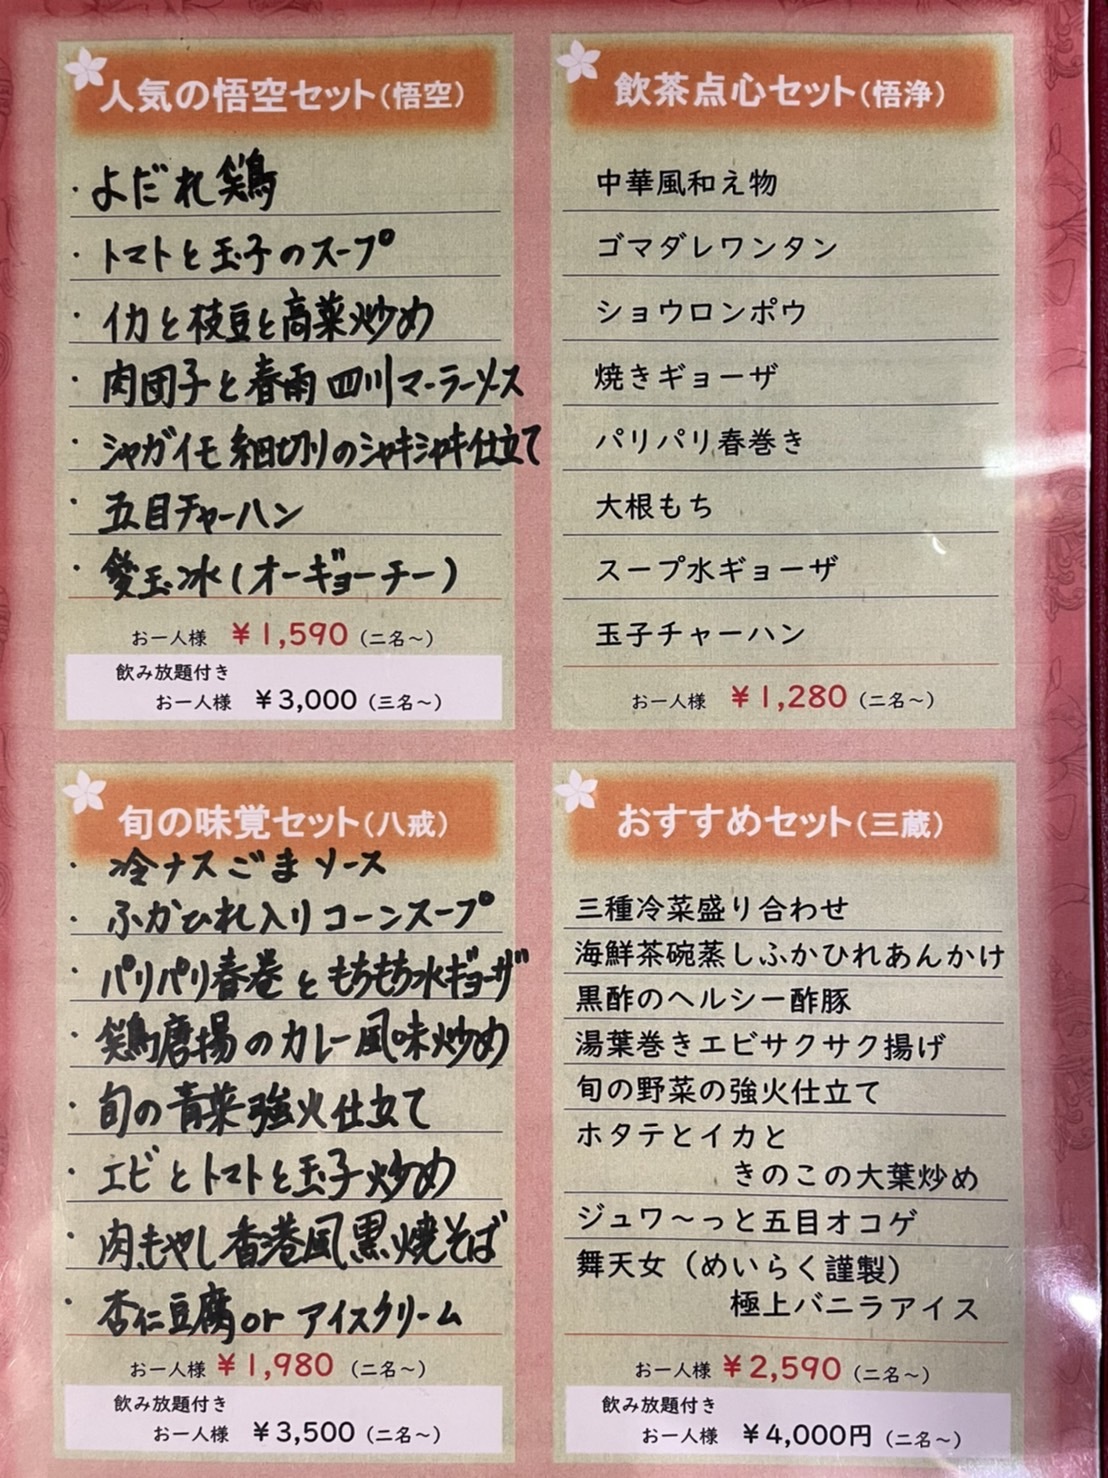 人気の悟空セット(悟空)
・よだれ鶏
・トマトと玉子のスープ
・イカと枝豆と高菜炒め
・肉団子と春雨 四川マーラーソース
・ジャガイモ細切りのシャキシャキ仕立て
・五目チャーハン
・愛玉冰(オーギョーチー)
お一人様 ¥1,590(二名〜)
飲み放題付き
お一人様 ¥3,000(三名〜)
飲茶点心セット(悟浄)
中華風和え物
ゴマダレワンタン
ショウロンポウ
焼きギョーザ
パリパリ春巻き
大根もち
スープ水ギョーザ
玉子チャーハン
お一人様 ¥1,280(二名〜)
旬の味覚セット(八戒)
・冷ナスごまソース
・ふかひれ入りコーンスープ
・パリパリ春巻ともちもち水ギョーザ
・鶏唐揚のカレー風味炒め
・旬の青菜強火仕立て
・エビとトマトと玉子炒め
・肉もやし香港風黒焼そば
・杏仁豆腐or アイスクリーム
お一人様 ¥1,980(二名〜)
飲み放題付き
お一人様 ¥3,500(二名〜)
おすすめセット(三蔵)
三種冷菜盛り合わせ
海鮮茶碗蒸しふかひれあんかけ
黒酢のヘルシー酢豚
湯葉巻きエビサクサク揚げ
旬の野菜の強火仕立て
ホタテとイカと
きのこの大葉炒め
ジュワ〜っと五目オコゲ
舞天女(めいらく謹製)
極上バニラアイス
お一人様 ¥2,590(二名〜)
飲み放題付き
お一人様 ¥4,000円(二名〜)